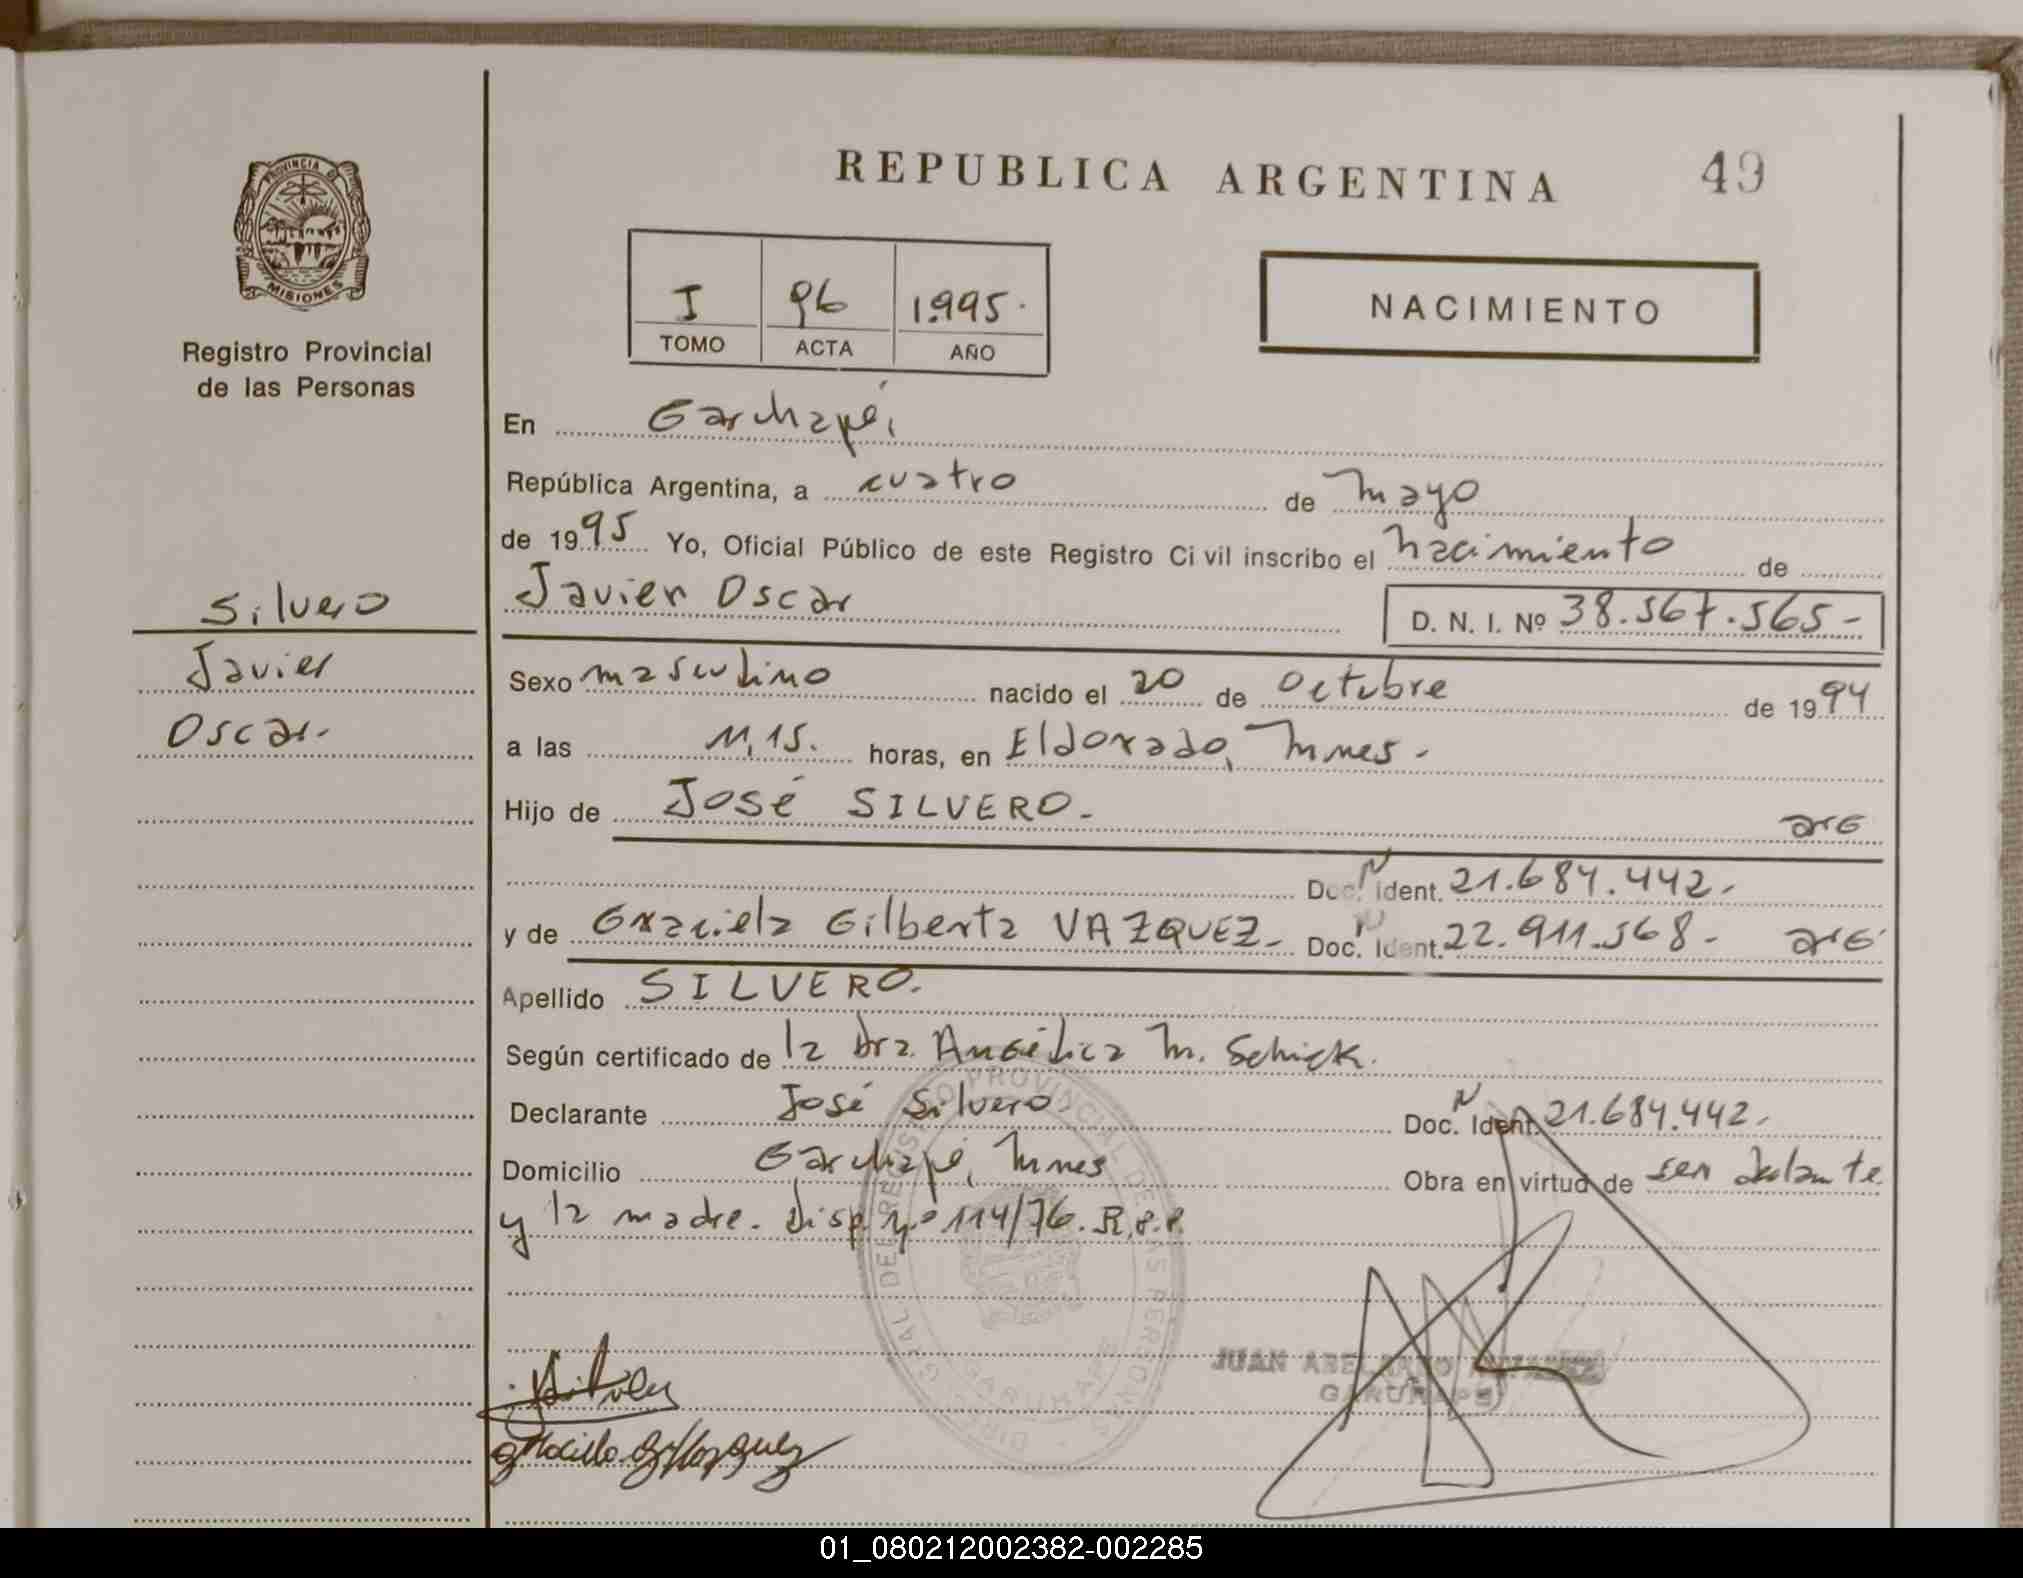 REPUBLICA ARGENTINA
49
PROVINCIA DE
MISIONES
Registro Provincial
de las Personas
I 96 1.995.
TOMO ACTA AÑO
NACIMIENTO
En Garuhapé,
República Argentina, a cuatro de mayo
de 1995 Yo, Oficial Público de este Registro Civil inscribo el nacimiento de
Javier Oscar D. N. I. Nº 38.567.565-
Silvero
Javier
Oscar.
Sexo masculino nacido el 20 de octubre de 1994
a las 11,15. horas, en Eldorado, Mnes.
Hijo de José SILVERO. arg
Doc. N Ident. 21.684.442.
y de Graciela Gilberta VAZQUEZ. Doc. N Ident. 22.911.568. arg
Apellido SILVERO.
Según certificado de la Dra. Angélica M. Schick.
Declarante José Silvero. Doc. N Ident. 21.684.442.
Domicilio Garuhapé, Mnes Obra en virtud de ser declarante
y la madre. Disp. Nº 114/76. R.P.P.
DIREC. GRAL DEL REGISTRO PROVINCIAL DE LAS PERSONAS
GARUHAPE
JUAN ABELARDO
GARUHAPE
01_080212002382-002285